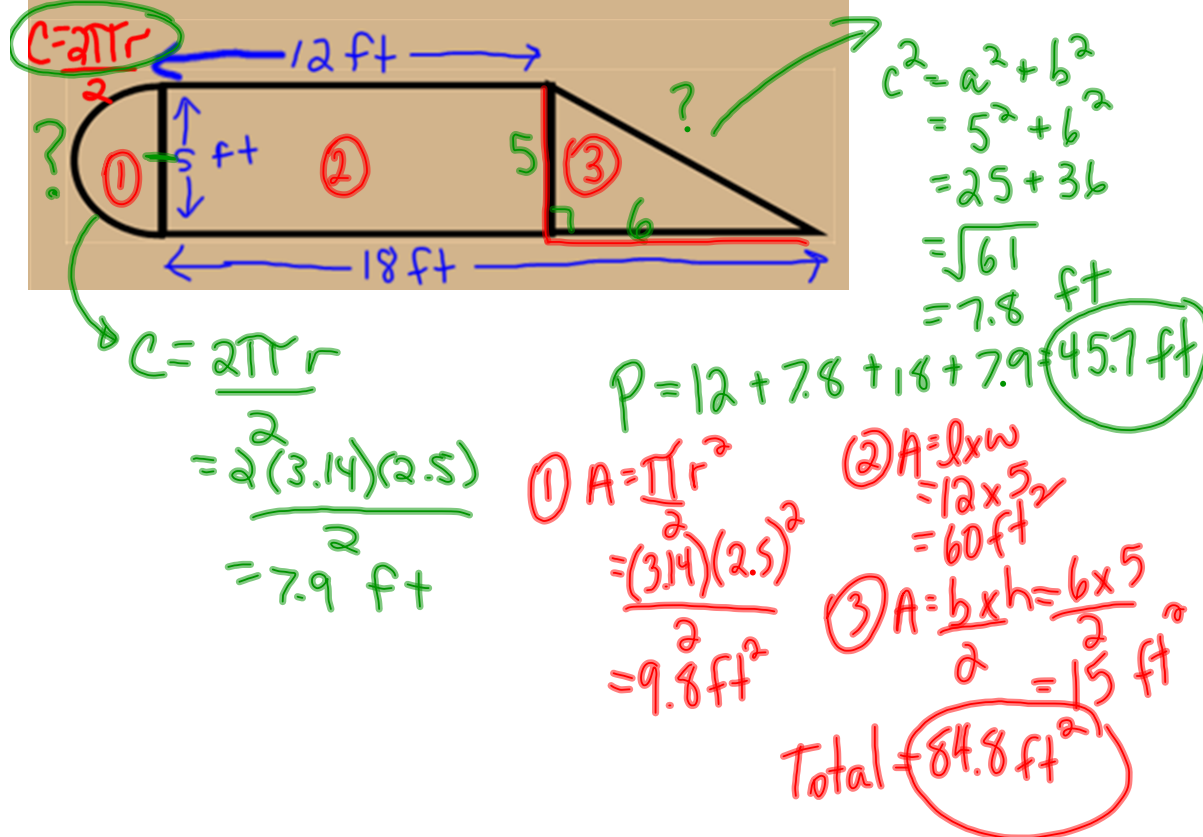 C=2πr
2
12 ft
?
5 ft
①
②
5
③
6
?
18 ft
c² = a² + b²
= 5² + 6²
= 25 + 36
= √61
= 7.8 ft
C = 2πr
2
= 2(3.14)(2.5)
2
= 7.9 ft
P = 12 + 7.8 + 18 + 7.9 = 45.7 ft
① A = πr²
2
= (3.14)(2.5)²
2
= 9.8 ft²
② A = l x w
= 12 x 5
= 60 ft²
③ A = b x h = 6 x 5
2 2
= 15 ft²
Total = 84.8 ft²